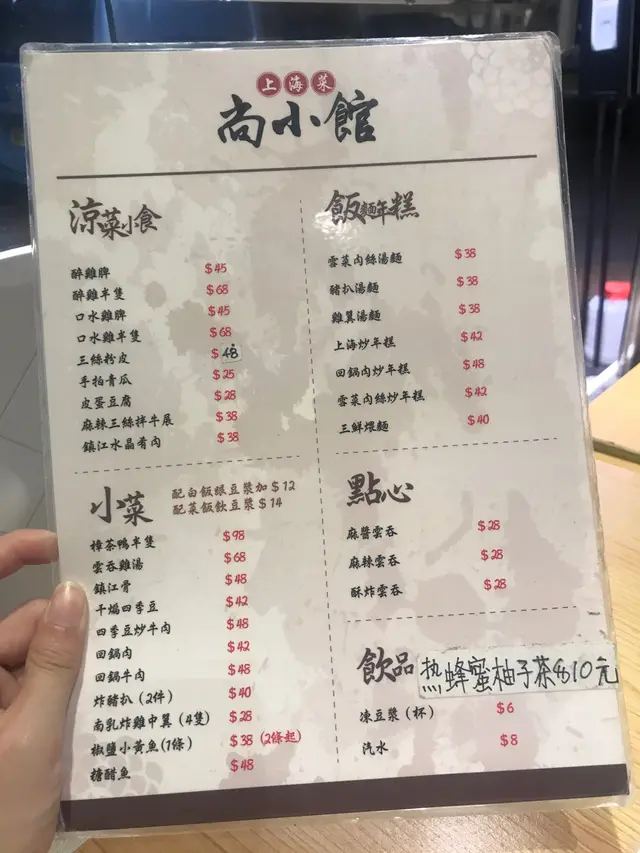 上海菜
尚小館
涼菜小食
醉雞脾 $45
醉雞半隻 $68
口水雞脾 $45
口水雞半隻 $68
三絲粉皮 $48
手拍青瓜 $25
皮蛋豆腐 $28
麻辣三絲拌牛展 $38
鎮江水晶肴肉 $38
小菜
配白飯跟豆漿加 $12
配菜飯飲豆漿 $14
樟茶鴨半隻 $98
雲吞雞湯 $68
鎮江骨 $48
干煸四季豆 $42
四季豆炒牛肉 $48
回鍋肉 $42
回鍋牛肉 $48
炸豬扒 (2件) $40
南乳炸雞中翼 (4隻) $28
椒鹽小黃魚(1條) $38 (2條起)
糖醋魚 $48
飯麵年糕
雪菜肉絲湯麵 $38
豬扒湯麵 $38
雞翼湯麵 $38
上海炒年糕 $42
回鍋肉炒年糕 $48
雪菜肉絲炒年糕 $42
三鮮煨麵 $40
點心
麻醬雲吞 $28
麻辣雲吞 $28
酥炸雲吞 $28
飲品
热蜂蜜柚子茶$10元
凍豆漿 (杯) $6
汽水 $8